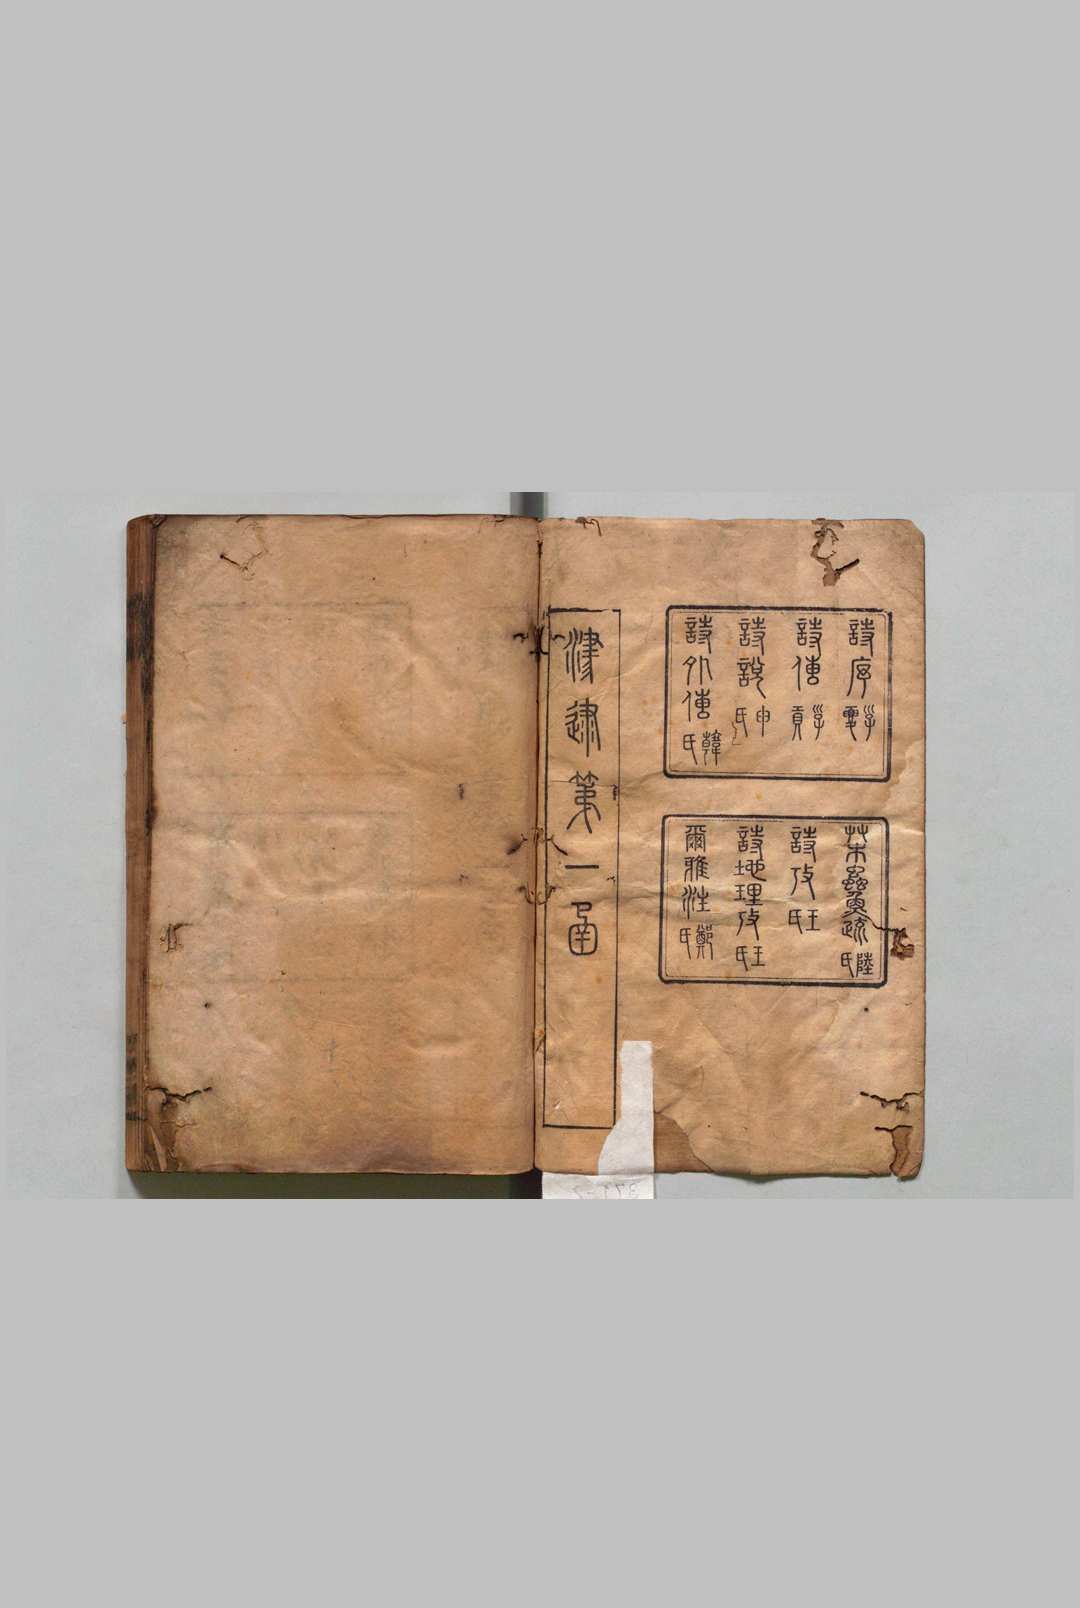 詩序 子夏
詩傳 子貢
詩說 申氏
詩外傳 韓氏
艸木蟲魚疏 陸氏
詩攷 王氏
詩地理攷 王氏
爾雅注 鄭氏
津逮第一函